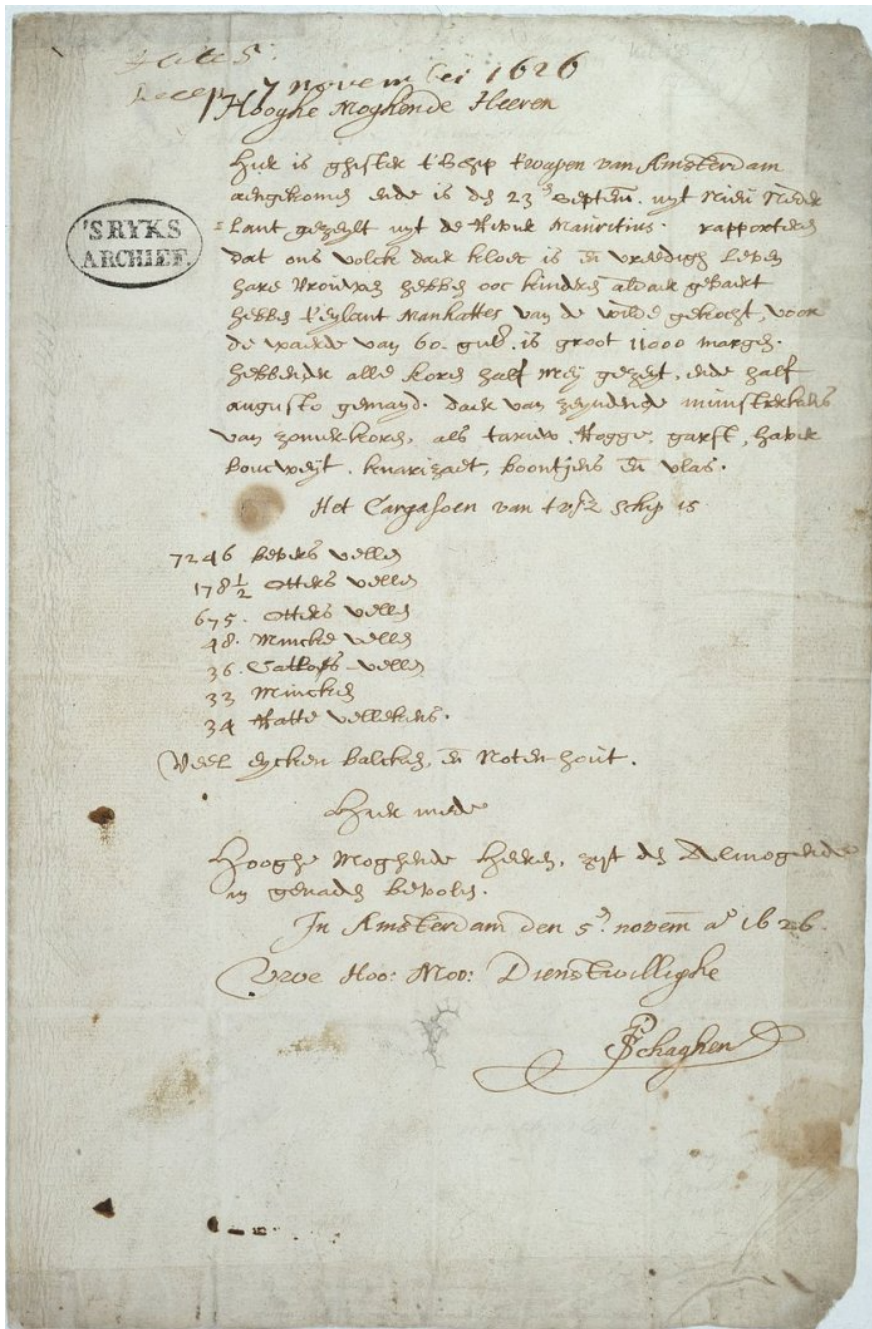 Recep. 7 november 1626
Hooghe Moghende Heeren
Hier is ghister t'Schip t'wapen van Amsterdam
aengekomen ende is den 23en septem. uyt Nieu Neder
=Lant gezeylt uyt de Rivier Mauritius. rapporteren
dat ons volck daer kloec is en vreedigh Leven
hare Vrouwen hebben ooc kinderen aldaer gebaert
hebben t'eylant Manhattes van de wilde gekocht, voor
de waerde van 60. gul. is groot 11000 margen.
hebbende alle koren half mey gezeyt, ende half
augusto gemayd. daer van zeynden munsterkens
van zomerkoren, als tarwe, Rogge, garst, haver
boucweyt, knarizaet, boontjens en vlas.
Het Cargasoen van tvsz schip is
7246 bevers vellen
178½ otters vellen
675. otters vellen
48. Mincke vellen
36. Catloes vellen
33 Mincken
34 Ratte vellekens.
Veel eycken balcken, en Noten-hout.
Hier mede
Hooghe Moghende Heeren, zyt den Almogende
in genaden bevolen.
In Amsterdam den 5en. novem ao 1626.
Uwe Hoo: Moo: Dienstwillighe
P Schaghen
'S RYKS
ARCHIEF.